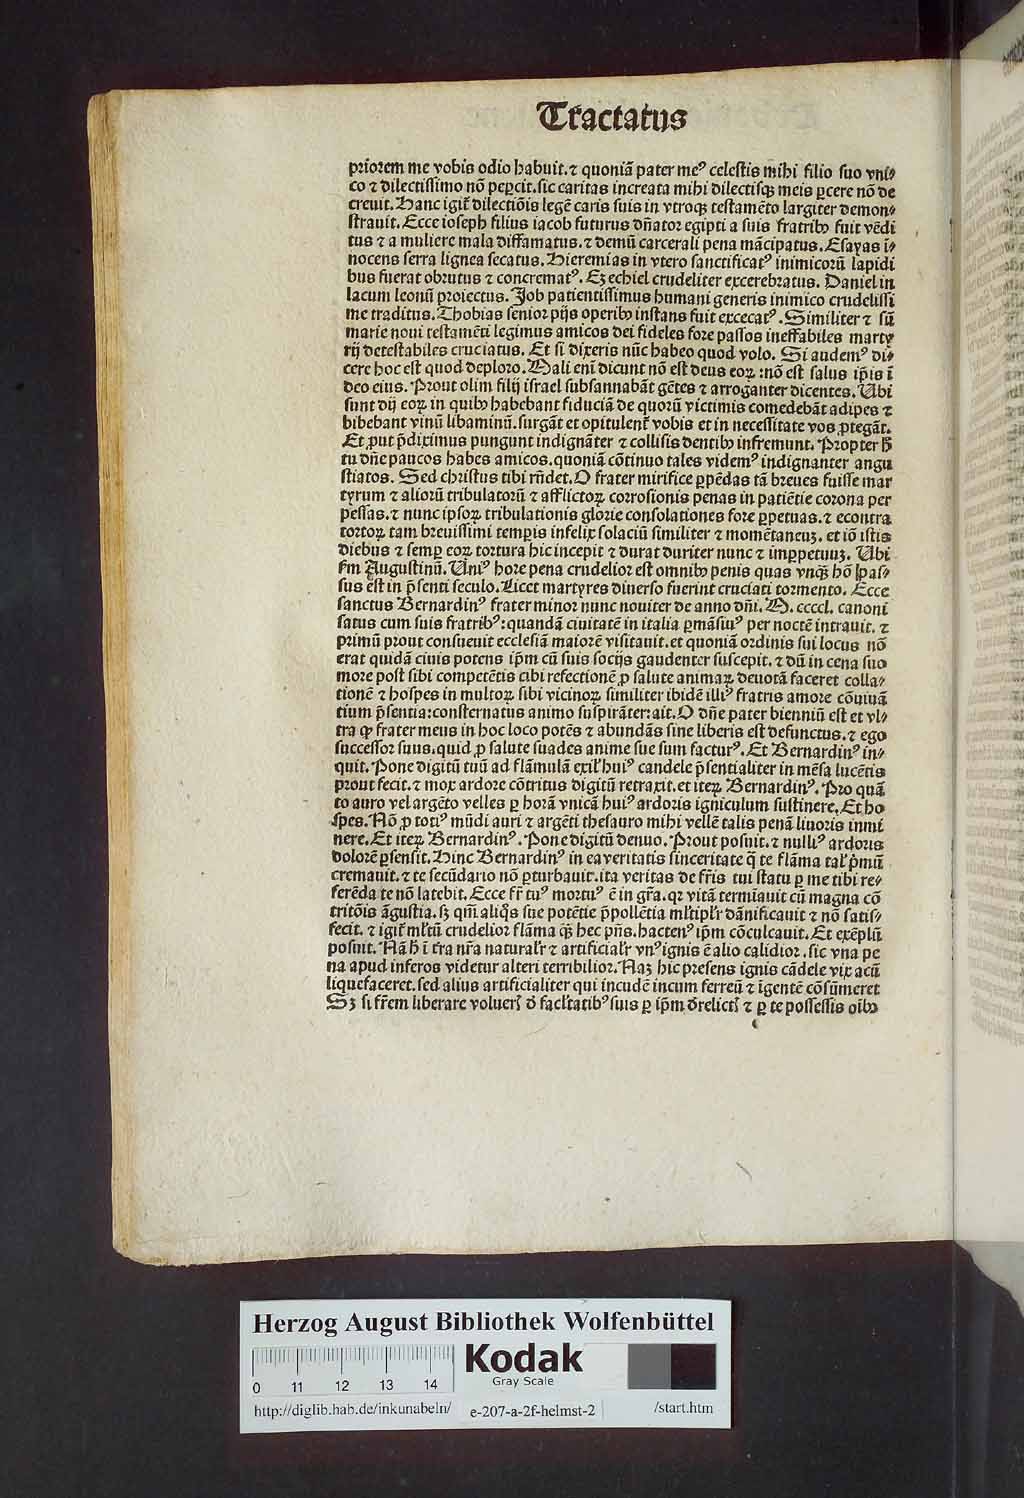 Tractatus
priorem me vobis odio habuit. ⁊ quoniã pater meꝰ celestis mihi filio suo vni⸗
co ⁊ dilectissimo nõ peꝑcit. sic caritas increata mihi dilectisqꝫ meis ꝑcere nõ de
creuit. Hanc igit᷑ dilectiõis legẽ caris suis in vtroqꝫ testamẽto largiter demon⸗
strauit. Ecce ioseph filius iacob futurus dñator egipti a suis fratribꝰ fuit vẽdi
tus ⁊ a muliere mala diffamatus. ⁊ demũ carcerali pena mãcipatus. Esayas ĩ⸗
nocens serra lignea secatus. Hieremias in vtero sanctificatꝰ inimicorũ lapidi
bus fuerat obrutus ⁊ concrematꝰ. Ezechiel crudeliter excerebratus. Daniel in
lacum leonũ proiectus. Job patientissimus humani generis inimico crudelissi
me traditus. Thobias senior pijs operibꝰ instans fuit excecatꝰ. Similiter ⁊ sũ
marie noui testamẽti legimus amicos dei fideles fore passos ineffabiles marty
rij detestabiles cruciatus. Et si dixeris nũc habeo quod volo. Si audemꝰ di⸗
cere hoc est quod deploro. Mali eni dicunt nõ est deus eoꝝ : nõ est salus ip̃is ĩ
deo eius. Prout olim filij israel subsannabãt gẽtes ⁊ arroganter dicentes. Ubi
sunt dij eoꝝ in quibꝰ habebant fiduciã de quorũ victimis comedebãt adipes ⁊
bibebant vinũ libaminũ. surgãt et opitulent᷑ vobis et in necessitate vos ꝓtegãt.
Et ꝓut p̃diximus pungunt indignãter ⁊ collisis dentibꝰ infremunt. Propter h̃
tu dñe paucos habes amicos. quoniã cõtinuo tales videmꝰ indignanter angu
stiatos. Sed christus tibi rñdet. O frater mirifice ꝑpẽdas tã breues fuisse mar
tyrum ⁊ aliorũ tribulatorũ ⁊ afflictoꝝ corrosionis penas in patiẽtie corona per
pessas. ⁊ nunc ipsoꝝ tribulationis glorie consolationes fore ꝑpetuas. ⁊ econtra
tortoꝝ tam breuissimi temꝑis infelix solaciũ similiter ⁊ momẽtaneuꝫ. et iõ istis
diebus ⁊ semꝑ eoꝝ tortura hic incepit ⁊ durat duriter nunc ⁊ imꝑpetuuꝫ. Ubi
fm̃ Augustinũ. Uniꝰ hore pena crudelior est omnibꝰ penis quas vnqꝫ̃ hõ pas⸗
sus est in p̃senti seculo. Licet martyres diuerso fuerint cruciati tormento. Ecce
sanctus Bernardinꝰ frater minor nunc nouiter de anno dñi. M. ccccl. canoni
satus cum suis fratribꝰ : quandã ciuitatẽ in italia ꝑmãsiuꝰ per noctẽ intrauit. ⁊
primũ prout consueuit ecclesiã maiorẽ visitauit. et quoniã ordinis sui locus nõ
erat quidã ciuis potens ip̃m cũ suis socijs gaudenter suscepit. ⁊ dũ in cena suo
more post sibi competẽtis cibi refectionẽ ꝓ salute animaꝝ deuotã faceret colla⸗
tionẽ ⁊ hospes in multoꝝ sibi vicinoꝝ similiter ibidẽ illiꝰ fratris amore cõuiuã
tium p̃sentia : consternatus animo suspirãter : ait. O dñe pater bienniũ est et vl⸗
tra qꝫ frater meus in hoc loco potẽs ⁊ abundãs sine liberis est defunctus. ⁊ ego
successor suus. quid ꝓ salute suades anime sue sum facturꝰ. Et Bernardinꝰ in⸗
quit. Pone digitũ tuũ ad flãmulã exil᷑ huiꝰ candele p̃sentialiter in mẽsa lucẽtis
prout fecit. ⁊ mox ardore cõtritus digitũ retraxit. et iteꝝ Bernardinꝰ. Pro quã
to auro vel argẽto velles ꝑ horã vnicã huiꝰ ardoris igniculum sustinere. Et ho
spes. Nõ ꝓ totiꝰ mũdi auri ⁊ argẽti thesauro mihi vellẽ talis penã liuoris inmi
nere. Et iteꝝ Bernardinꝰ. Pone digitũ denuo. Prout posuit. ⁊ nulliꝰ ardoris
dolorẽ ꝑsensit. Hinc Bernardinꝰ in ea veritatis sinceritate q̃ te flãma tal᷑ p̃mũ
cremauit. ⁊ te secũdario nõ ꝑturbauit. ita veritas de fr̃is tui statu ꝑ me tibi re⸗
ferẽda te nõ latebit. Ecce fr̃ tuꝰ mortuꝰ ẽ in gr̃a. qꝛ vitã termĩauit cũ magna cõ
tritõis ãgustia. sꝫ qm̃ aliq̃s sue potẽtie p̃pollẽtia ml᷑tipl᷑r dãnificauit ⁊ nõ satis⸗
fecit. ⁊ igit᷑ ml᷑tũ crudelior flãma qꝫ̃ hec pñs. hactenꝰ ip̃m cõculcauit. Et exẽplũ
posuit. Nã h̃ ĩ tra nr̃a natural᷑r ⁊ artificial᷑r vnꝰ ignis ẽ alio calidior. sic vna pe
na apud inferos videtur alteri terribilior. Naꝫ hic presens ignis cãdele vix acũ
liquefaceret. sed alius artificialiter qui incudẽ incum ferreũ ⁊ ĩgentẽ cõsũmeret
Sꝫ si fr̃em liberare volueris̃ d̃ facl᷑tatibꝰ suis ꝑ ip̃m d̃relictis̃ ⁊ ꝑ te possessis oĩbꝰ
Herzog August Bibliothek Wolfenbüttel
Kodak
Gray Scale
0 11 12 13 14
http://diglib.hab.de/inkunabeln/ e-207-a-2f-helmst-2 /start.htm